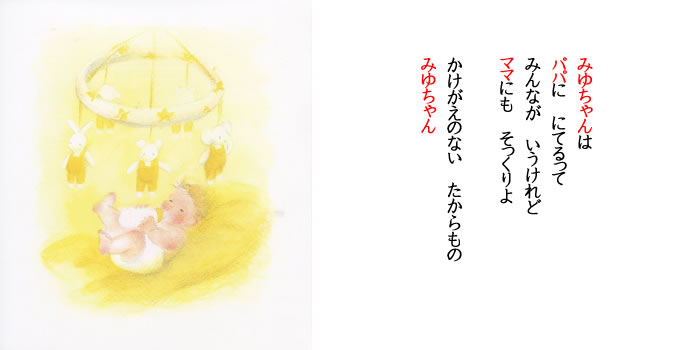 みゆちゃんは
パパに　にてるって
みんなが　いうけれど
ママにも　そっくりよ
かけがえのない　たからもの
みゆちゃん